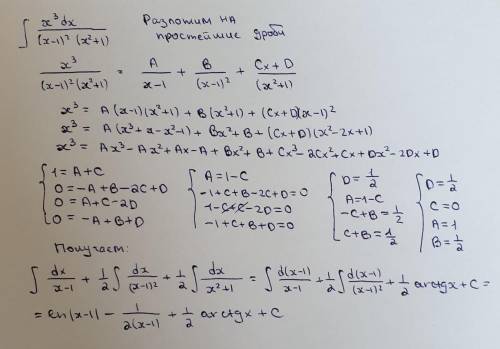 ∫ x³dx / ((x-1)² (x²+1)) Разложим на
простейшие дроби
x³ / ((x-1)²(x²+1)) = A/(x-1) + B/(x-1)² + (Cx+D)/(x²+1)
x³ = A(x-1)(x²+1) + B(x²+1) + (Cx+D)(x-1)²
x³ = A(x³+x-x²-1) + Bx²+B + (Cx+D)(x²-2x+1)
x³ = Ax³-Ax²+Ax-A + Bx²+B + Cx³-2Cx²+Cx+Dx²-2Dx+D
{ 1=A+C { A=1-C { D=1/2 { D=1/2
0=-A+B-2C+D -1+C+B-2C+D=0 A=1-C C=0
0=A+C-2D 1-C+C-2D=0 -C+B=1/2 A=1
0=-A+B+D -1+C+B+D=0 C+B=1/2 B=1/2
Получаем:
∫ dx/(x-1) + 1/2 ∫ dx/(x-1)² + 1/2 ∫ dx/(x²+1) = ∫ d(x-1)/(x-1) + 1/2 ∫ d(x-1)/(x-1)² + 1/2 arctgx + C =
= ln|x-1| - 1/(2(x-1)) + 1/2 arctgx + C